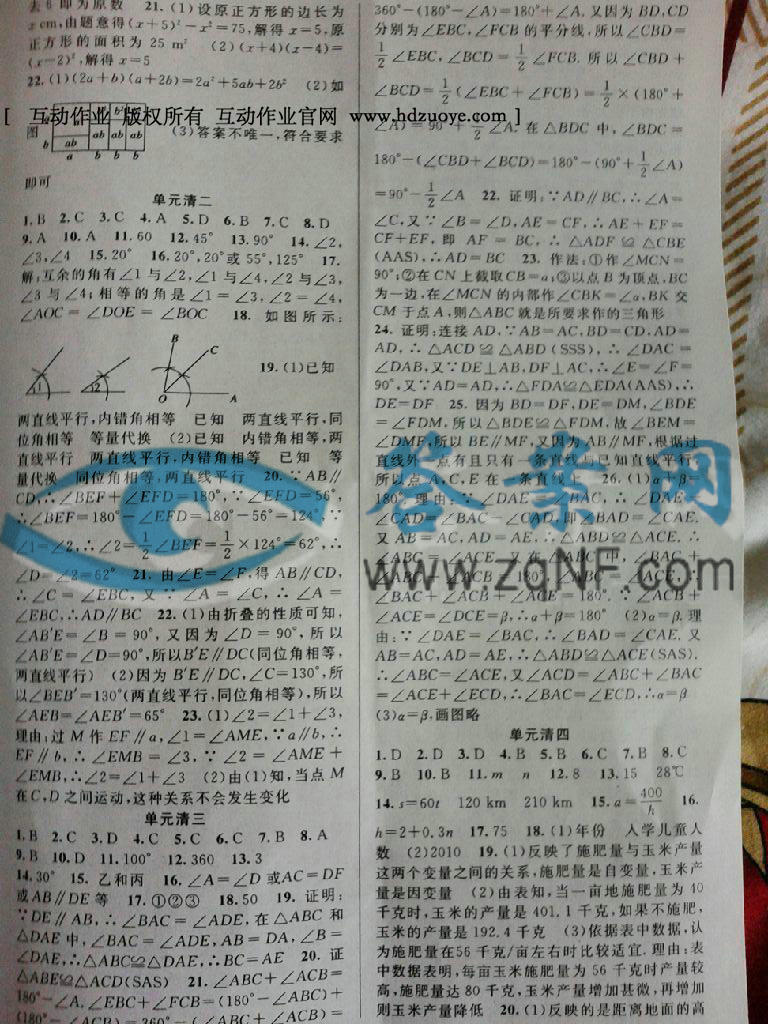 去6即为原数 21.(1)设原正方形的边长为
x cm,由题意得(x+5)²-x²=75,解得x=5,原
正方形的面积为25 m² (2)(x+4)(x-4)=
(x-2)²,解得x=5
22.(1)(2a+b)(a+2b)=2a²+5ab+2b² (2)如
[ 互动作业 版权所有 互动作业官网 www.hdzuoye.com ]
图
(3)答案不唯一,符合要求
即可
单元清二
1.B 2.C 3.C 4.A 5.D 6.B 7.C 8.D
9.A 10.A 11.60 12.45° 13.90° 14.∠2,
∠3,∠4 15.20° 16.20°,20°或55°,125° 17.
解:互余的角有∠1与∠2,∠1与∠4,∠2与∠3,
∠3与∠4;相等的角是∠1=∠3,∠2=∠4,
∠AOC=∠DOE=∠BOC 18. 如图所示:
1 2 B C O A
19.(1)已知
两直线平行,内错角相等 已知 两直线平行,同
位角相等 等量代换 (2)已知 内错角相等,两
直线平行 两直线平行,内错角相等 已知 等
量代换 同位角相等,两直线平行 20.∵AB∥
CD,∴∠BEF+∠EFD=180°,∵∠EFD=56°,
∴∠BEF=180°-∠EFD=180°-56°=124°,∵
∠1=∠2,∴∠2=1/2∠BEF=1/2×124°=62°,∴
∠D=∠2=62° 21. 由∠E=∠F,得AB∥CD,
∴∠C=∠EBC,又∵∠A=∠C,∴∠A=
∠EBC,∴AD∥BC 22.(1)由折叠的性质可知,
∠AB′E=∠B=90°,又因为∠D=90°,所以
∠AB′E=∠D=90°,所以B′E∥DC(同位角相等,
两直线平行) (2)因为B′E∥DC,∠C=130°,所
以∠BEB′=130°(两直线平行,同位角相等),所以
∠AEB=∠AEB′=65° 23.(1)∠2=∠1+∠3,
理由:过M作EF∥a,∠1=∠AME,∵a∥b,∴
EF∥b,∴∠EMB=∠3,∵∠2=∠AME+
∠EMB,∴∠2=∠1+∠3 (2)由(1)知,当点M
在C,D之间运动,这种关系不会发生变化
单元清三
1.B 2.C 3.D 4.C 5.C 6.C 7.B 8.A
9.B 10.D 11.100° 12.360 13.3
14.30° 15.乙和丙 16.∠A=∠D或AC=DF
或AB∥DE等 17.①②③ 18.50 19. 证明:
∵DE∥AB,∴∠BAC=∠ADE,在△ABC和
△DAE中,∠BAC=∠ADE,AB=DA,∠B=
∠DAE,∴△ABC≌△DAE,∴BC=AE 20. 证
△ABE≌△ACD(SAS) 21.∠ABC+∠ACB=
180°-∠A,∠EBC+∠FCB=(180°-∠ABC)+
(180°-∠ACB)=360°-(∠ABC+∠ACB)=
360°-(180°-∠A)=180°+∠A,又因为BD,CD
分别为∠EBC,∠FCB的平分线,所以∠CBD=
1/2∠EBC,∠BCD=1/2∠FCB. 所以∠CBD+
∠BCD=1/2(∠EBC+∠FCB)=1/2×(180°+
∠A)=90°+1/2∠A. 在△BDC中,∠BDC=
180°-(∠CBD+∠BCD)=180°-(90°+1/2∠A)
=90°-1/2∠A 22. 证明:∵AD∥BC,∴∠A=
∠C,又∵∠B=∠D,AE=CF,∴AE+EF=
CF+EF,即AF=BC,∴△ADF≌△CBE
(AAS),∴AD=BC 23. 作法:①作∠MCN=
90°;②在CN上截取CB=a;③以点B为顶点,BC
为一边,在∠MCN的内部作∠CBK=∠α,BK交
CM于点A,则△ABC就是所要求作的三角形
24. 证明:连接AD,∵AB=AC,BD=CD,AD=
AD,∴△ACD≌△ABD(SSS),∴∠DAC=
∠DAB,又∵DE⊥AB,DF⊥AC,∴∠E=∠F=
90°,又∵AD=AD,∴△FDA≌△EDA(AAS),∴
DE=DF 25. 因为BD=DF,DE=DM,∠BDE
=∠FDM,所以△BDE≌△FDM,故∠BEM=
∠DMF,所以BE∥MF,又因为AB∥MF,根据过
直线外一点有且只有一条直线与已知直线平行,
所以点A,C,E在一条直线上 26.(1)α+β=
180°,理由:∵∠DAE=∠BAC,∴∠DAE-
∠CAD=∠BAC-∠CAD,即∠BAD=∠CAE,
又AB=AC,AD=AE,∴△ABD≌△ACE,∴
∠ABC=∠ACE,又在△ABC中,∠BAC+
∠ACB+∠ABC=180°,∠ABC=∠ACE,∴
∠BAC+∠ACB+∠ACE=180°,∵∠ACB+
∠ACE=∠DCE=β,∴α+β=180° (2)α=β,理
由:∵∠DAE=∠BAC,∴∠BAD=∠CAE,又
AB=AC,AD=AE,∴△ABD≌△ACE(SAS),
∴∠ABC=∠ACE,又∠ACD=∠ABC+∠BAC
=∠ACE+∠ECD,∴∠BAC=∠ECD,∴α=β
(3)α=β,画图略
单元清四
1.D 2.D 3.D 4.B 5.B 6.C 7.B 8.C
9.B 10.B 11.m n 12.8 13.15 28℃
14.s=60t 120 km 210 km 15.a=400/h 16.
h=2+0.3n 17.75 18.(1)年份 入学儿童人
数 (2)2010 19.(1)反映了施肥量与玉米产量
这两个变量之间的关系,施肥量是自变量,玉米产
量是因变量 (2)由表知,当一亩地施肥量为40
千克时,玉米的产量是401.1千克,如果不施肥,
玉米的产量是192.4千克 (3)依据表中数据,认
为施肥量在56千克/亩左右时比较适宜. 理由:表
中数据表明,每亩玉米施肥量为56千克时产量较
高,施肥量达80千克,玉米产量增加甚微,再增加
则玉米产量降低 20.(1)反映的是距离地面的高
答案网
www.zqNF.com